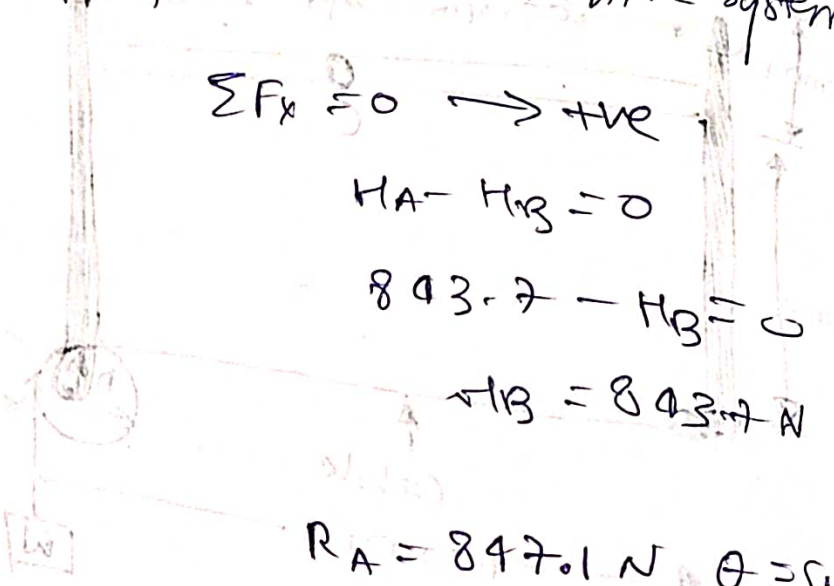 system
ΣFx = 0 → +ve
HA - HB = 0
843.7 - HB = 0
HB = 843.7 N
RA = 847.1 N θ =
W